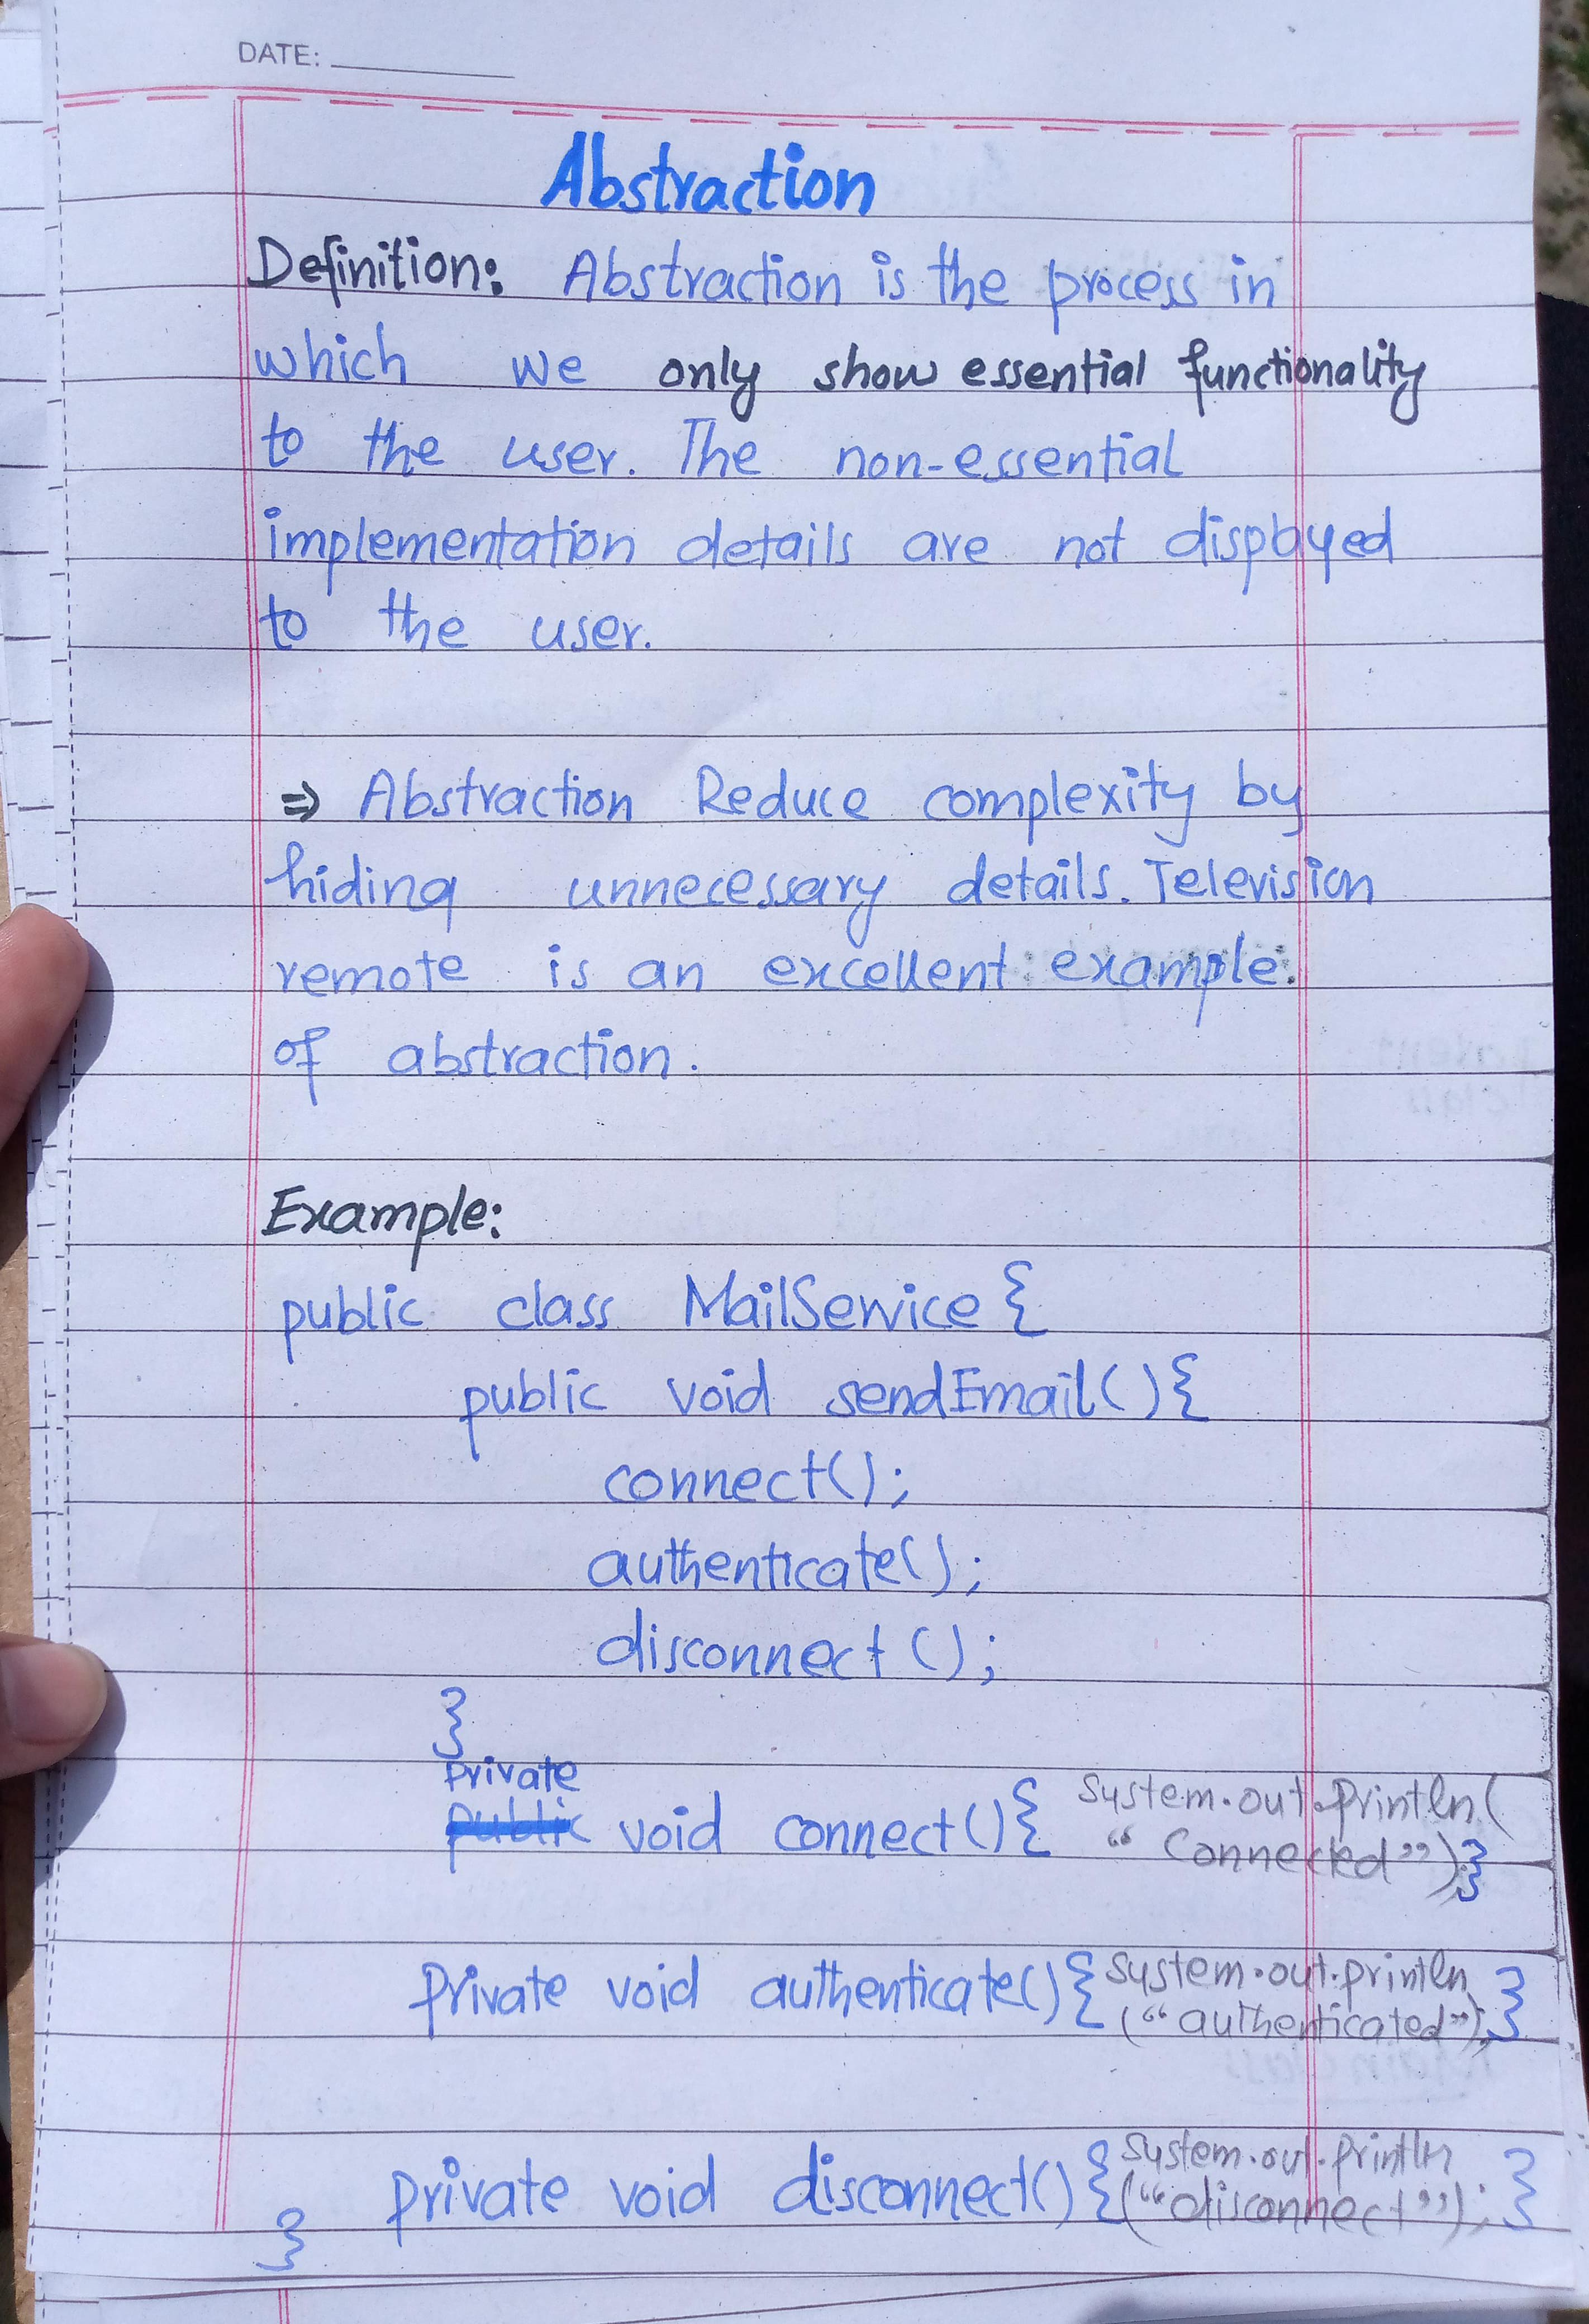 DATE:
Abstraction
Definition: Abstraction is the process in
which we only show essential functionality
to the user. The non-essential
implementation details are not displayed
to the user.
⇒ Abstraction Reduce complexity by
hiding unnecessary details. Television
remote is an excellent example.
of abstraction.
Example:
public class MailService {
public void sendEmail(){
connect();
authenticate();
disconnect();
}
private
public void connect(){ System.out.println(
“ Connected”);}
private void authenticate(){ System.out.println }
(“authenticated”);
private void disconnect(){ System.out.println }
(“disconnect”);
}